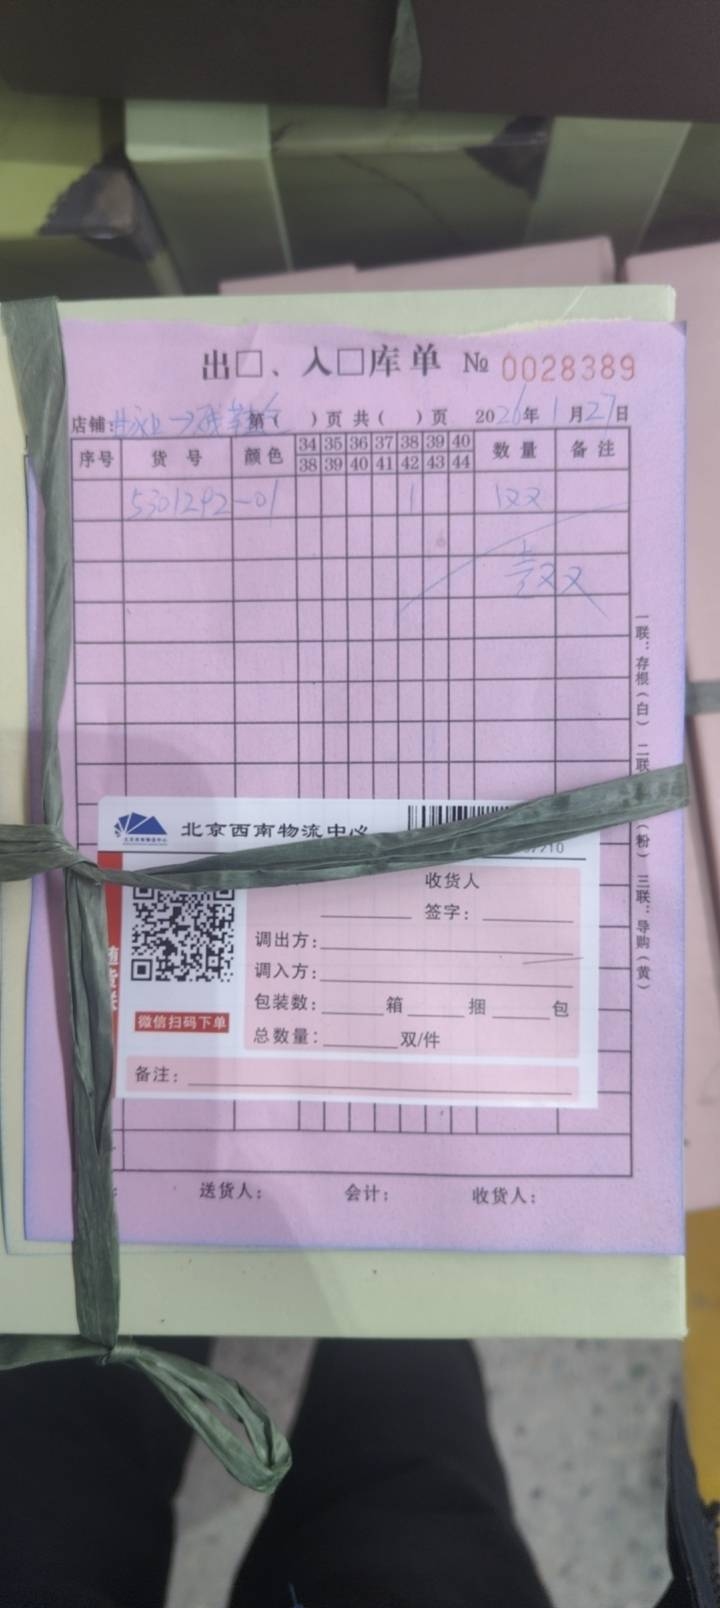 出□、入□库单 № 0028389
店铺: 第( )页 共( )页 2026年1月27日
序号 货号 颜色 34 35 36 37 38 39 40 数量 备注
38 39 40 41 42 43 44
5301292-01 1 1双
双
一联:存根(白) 二联 (粉) 三联:导购(黄)
北京西南物流中心
收货人
签字:
调出方:
调入方:
包装数: 箱 捆 包
总数量: 双/件
微信扫码下单
备注:
送货人: 会计: 收货人: